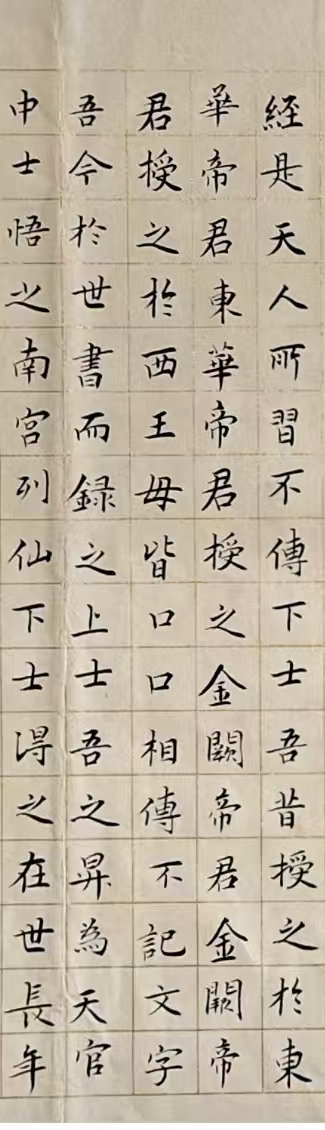 經是天人所習不傳下士吾昔授之於東
華帝君東華帝君授之金闕帝君金闕帝
君授之於西王母皆口口相傳不記文字
吾今於世書而録之上士吾之昇為天官
中士悟之南宮列仙下士得之在世長年